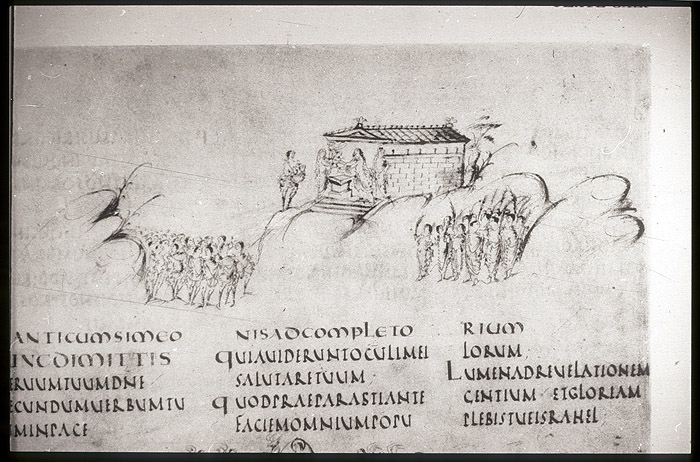 ANTICUMSIMEO NISADCOMPLETO RIUM
NCDIMITTIS
ERUUMTUUMDNE
ECUNDUMUERBUMTU
MINPACE
QUIAUIDERUNTOCULIMEI
SALUTARETUUM
QUODPRAEPARASTIANTE
FACIEMOMNIUMPOPU
LORUM
LUMENADREUELATIONEM
GENTIUM ETGLORIAM
PLEBISTUEISRAHEL